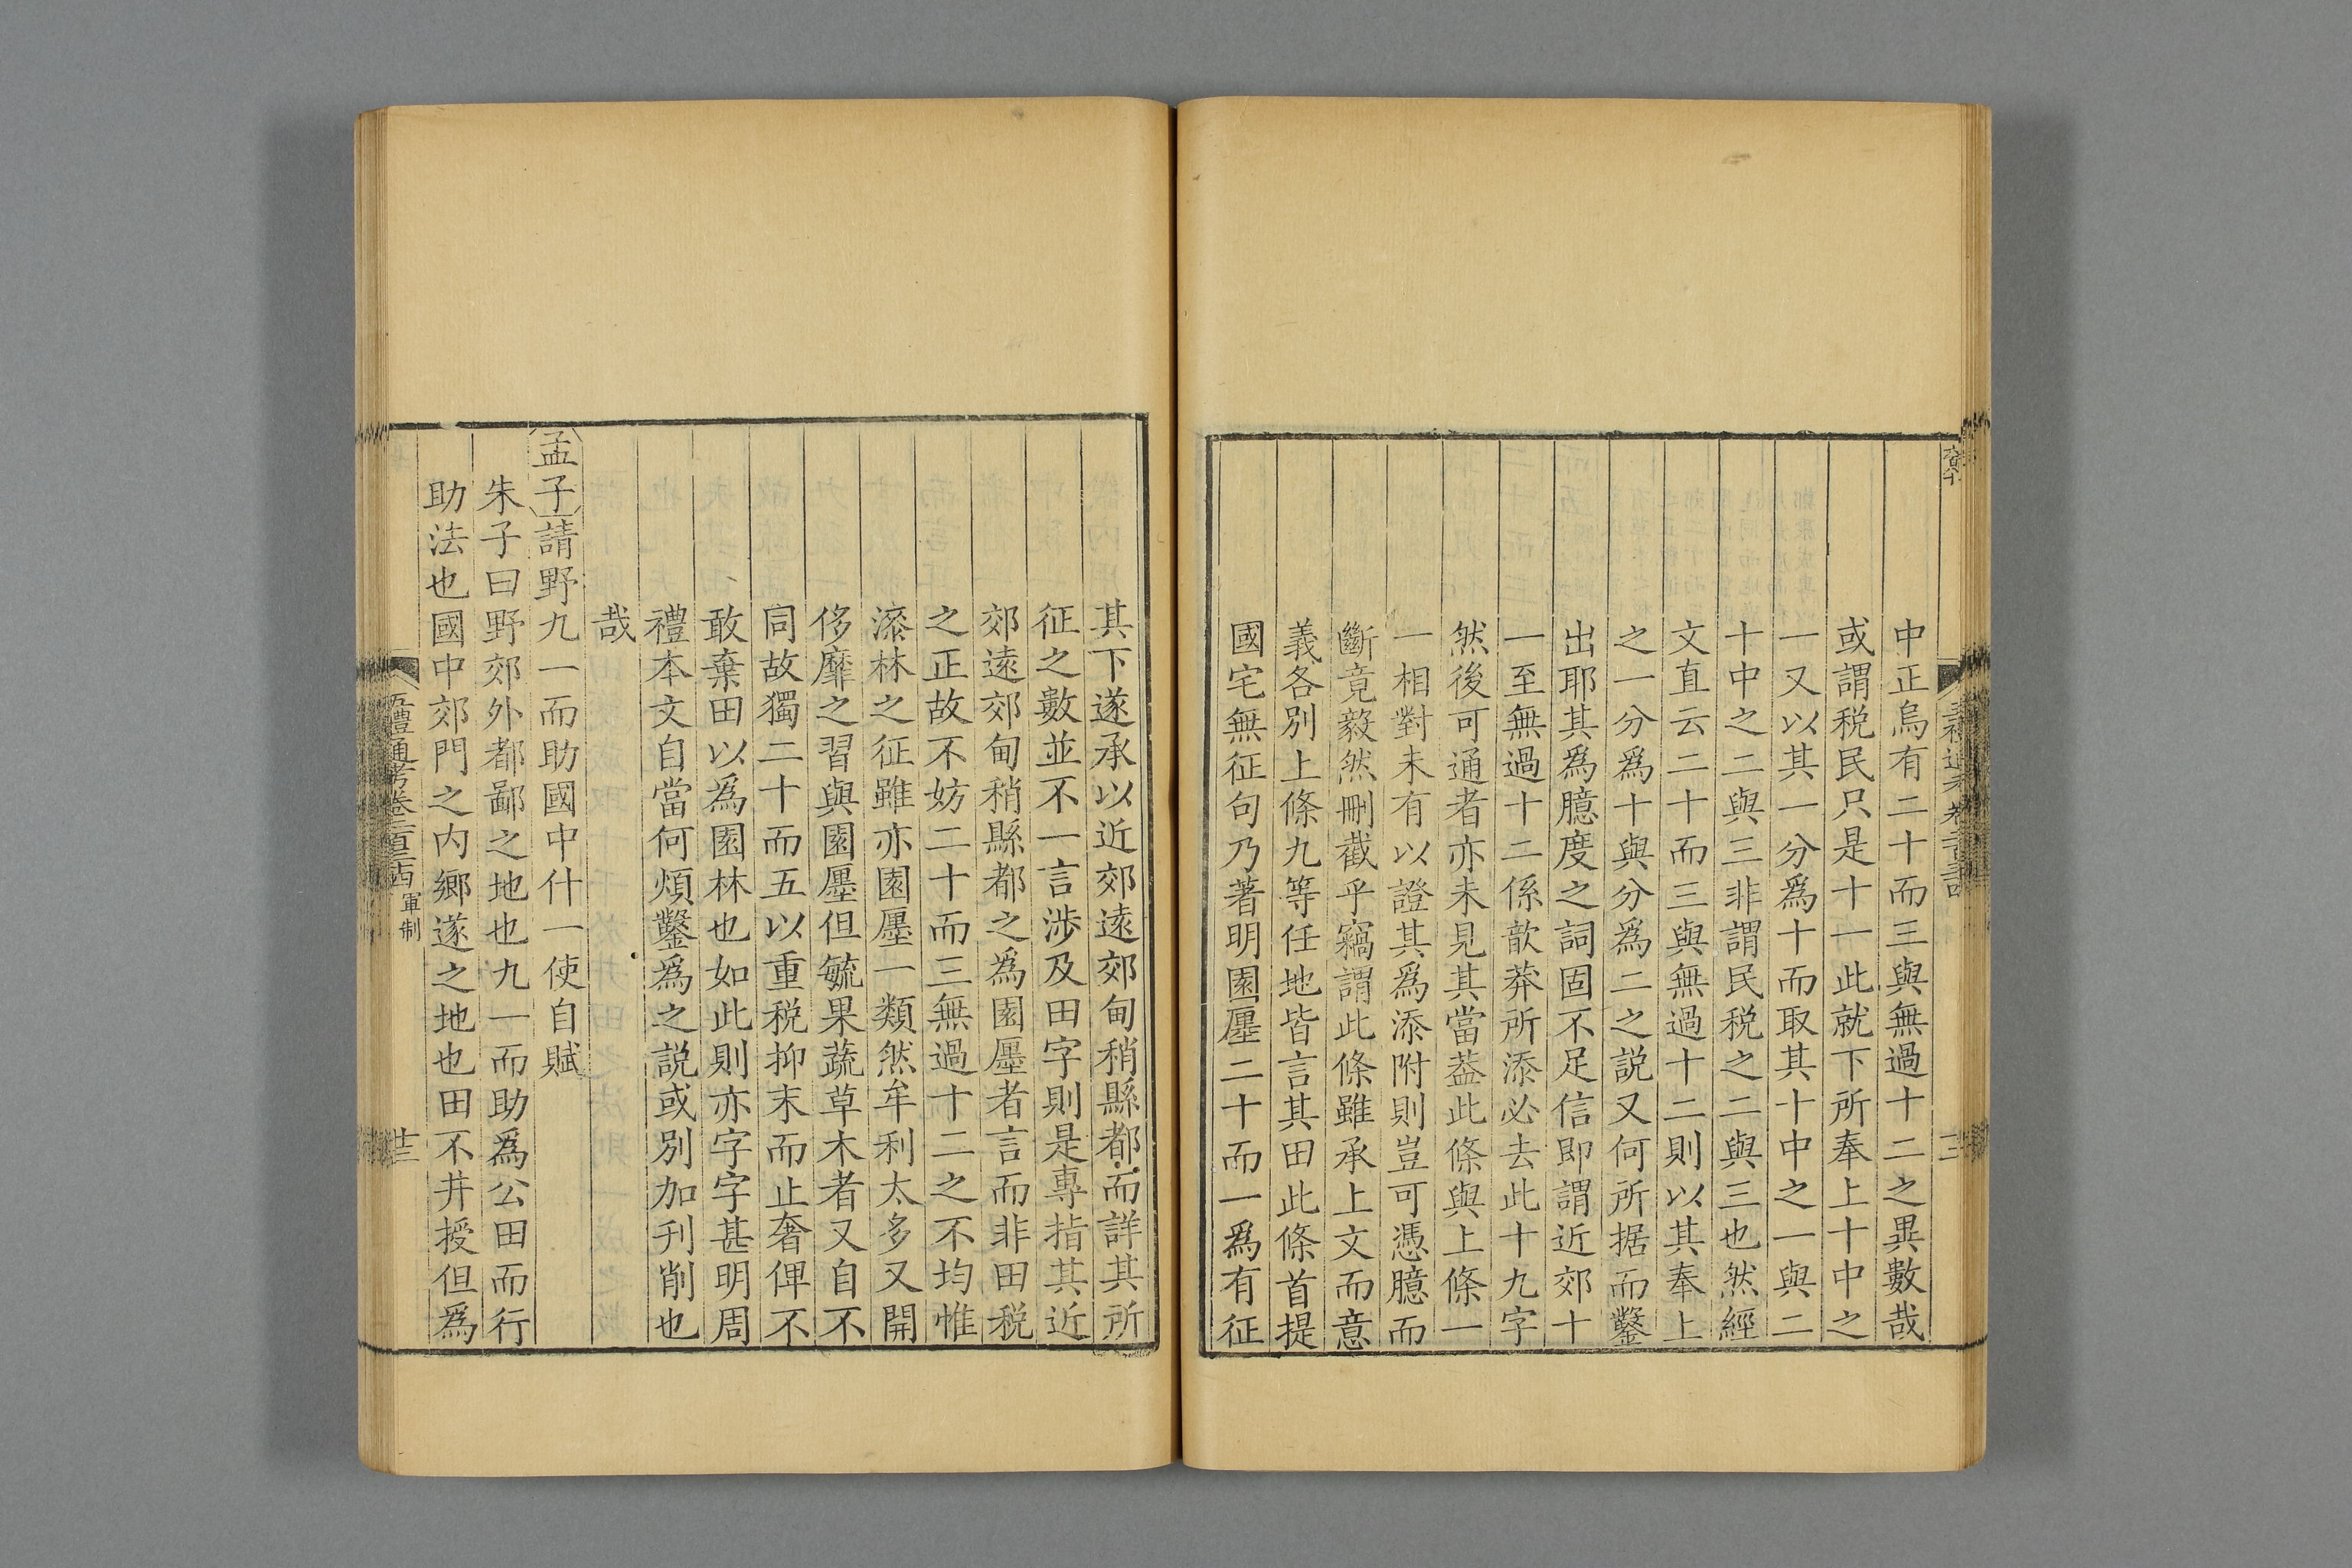 中正烏有二十而三與無過十二之異數哉
或謂税民只是十一此就下所奉上十中之
一又以其一分爲十而取其十中之一與二
十中之二與三非謂民税之二與三也然經
文直云二十而三與無過十二則以其奉上
之一分爲十與分爲二之説又何所据而鑿
出耶其爲臆度之詞固不足信即謂近郊十
一至無過十二係歆莽所添必去此十九字
然後可通者亦未見其當葢此條與上條一
一相對未有以證其爲添附則豈可憑臆而
斷竟毅然刪截乎竊謂此條雖承上文而意
義各別上條九等任地皆言其田此條首提
國宅無征句乃著明園廛二十而一爲有征
其下遂承以近郊遠郊甸稍縣都而詳其所
征之數並不一言涉及田字則是專指其近
郊遠郊甸稍縣都之爲園廛者言而非田税
之正故不妨二十而三無過十二之不均惟
漆林之征雖亦園廛一類然牟利太多又開
侈靡之習與園廛但毓果蔬草木者又自不
同故獨二十而五以重税抑末而止奢俾不
敢棄田以爲園林也如此則亦字字甚明周
禮本文自當何煩鑿爲之説或別加刋削也
哉
孟子請野九一而助國中什一使自賦
朱子曰野郊外都鄙之地也九一而助爲公田而行
助法也國中郊門之内鄉遂之地也田不井授但爲
五禮通考卷二百三十四 軍制